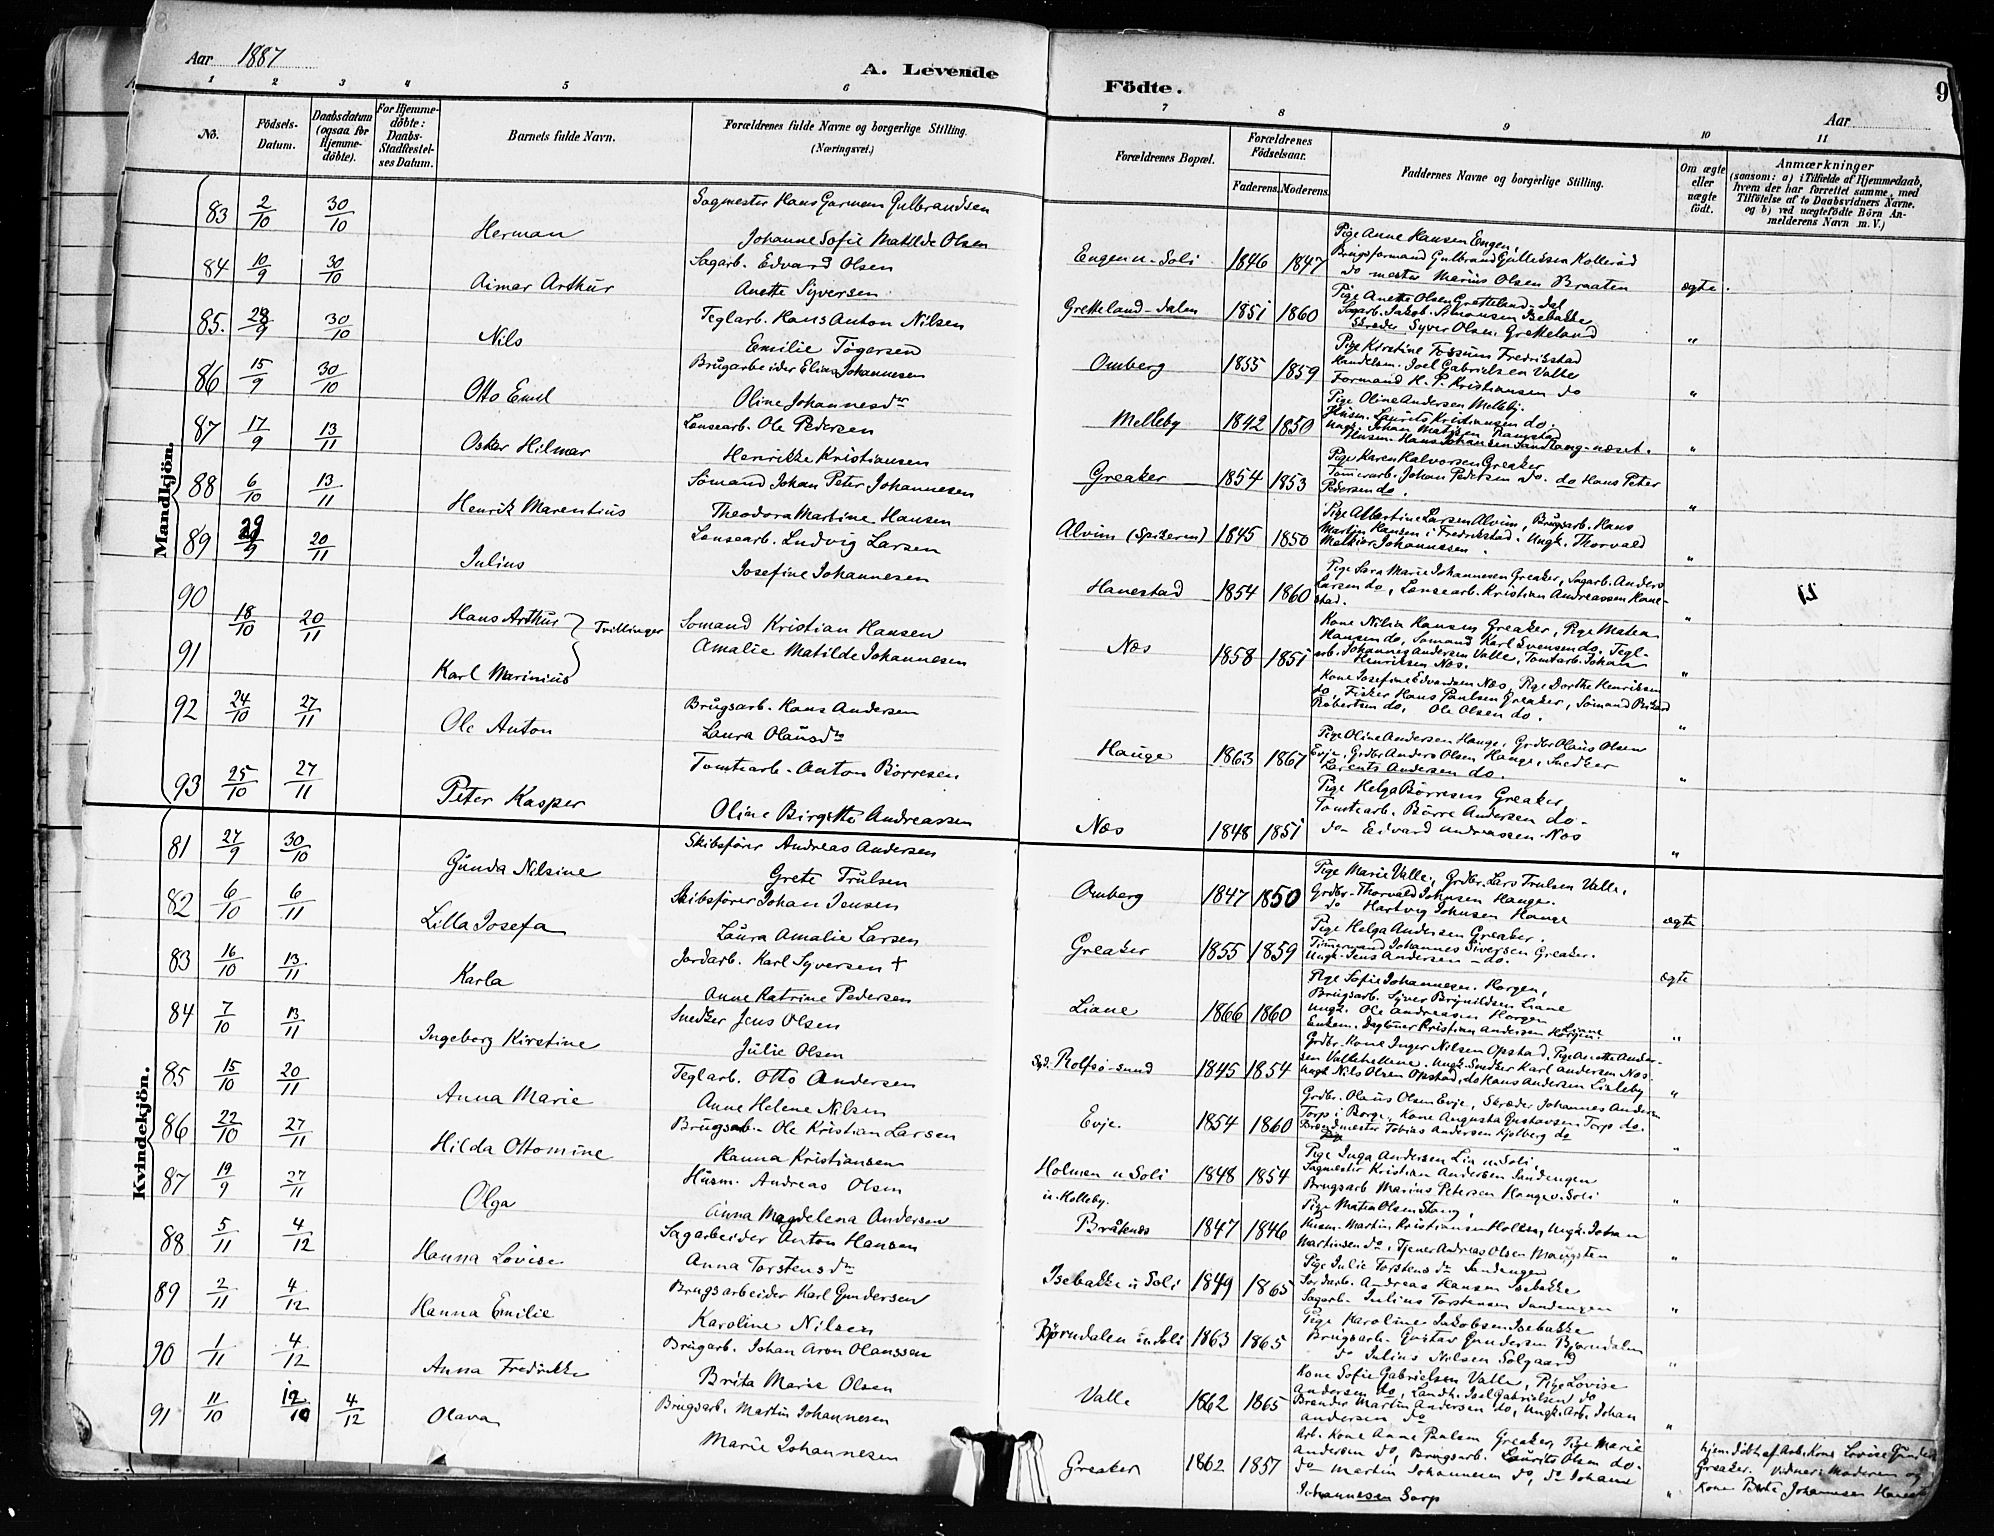 8
Aar 1887
A. Levende
1 2 3 4 5 6
No.
Födsels-Datum.
Daabsdatum (ogsaa for Hjemmedöbte).
For Hjemmedöbte: Daabs-Stadfæstelses Datum.
Barnets fulde Navn.
Forældrenes fulde Navne og borgerlige Stilling. (Næringsvei.)
Födte.
9
Aar
7 8 9 10 11
Forældrenes Bopæl.
Forældrenes Födselsaar.
Faderens. Moderens.
Faddernes Navne og borgerlige Stilling.
Om ægte eller uægte födt.
Anmærkninger
(saasom: a) i Tilfælde af Hjemmedaab,
hvem der har forrettet samme, med
Tilföielse af to Daabsvidners Navne.
og b) ved uægtefödte Börn An-
melderens Navn m. V.)
Mandkjön.
83 2/10 30/10 Herman
Sagmester Hans Garmann Gulbrandsen
Johanne Sofie Matilde Olsen
Engen u. Soli 1846 1847
Pige Anne Hansen Engen,
Brugsformand Gulbrand Gulliksen Kollerød
do mester Marius Olsen Braaten
ægte.
84 10/9 30/10 Aimar Arthur
Sagarb. Edvard Olsen
Anette Syversen
Gretteland-dalen 1851 1860
Pige Anette Olsen Gretteland-dal
Sagarb. Jakob Simonsen Isebakke
Skræder Syver Olsen Gretteland
"
85. 28/9 30/10 Nils
Teglarb. Hans Anton Nilsen
Emilie Tøgersen
Omberg 1855 1859
Pige Kirstine Fossum Fredrikstad
Handelsm. Joel Gabrielsen Valle
Formand H. P. Kristiansen do
"
86 15/9 30/10 Otto Emil
Brugarbeider Elias Johannesen
Oline Johannesdr
Melleby 1842 1850
Pige Oline Andersen Melleby.
Husm. Laurits Kristiansen do.
Ungk. Johan Matisen Ramstad
Husm. Hans Johansen Sandtang-næset.
"
87 17/9 13/11 Oskar Hilmar
Lansearb. Ole Pedersen
Henrikke Kristiansen
Greaker 1854 1853
Pige Karen Halvorsen Greaker
Tømmerarb. Johan Pedersen do. do Hans Peter
Pedersen do.
"
88 6/10 13/11 Henrik Marentius
Sømand Johan Peter Johannesen
Theodora Martine Hansen
Alvim (Spikeren) 1845 1850
Pige Albertine Larsen Alvim, Brugsarb. Hans
Martin Hansen i Fredrikstad. Ungk. Thorvald
Melkior Johannesen.
"
89 29/9 20/11 Julius
Lansearb. Ludvig Larsen
Josefine Johannesen
Hanestad 1854 1860
Pige Sara Marie Johannesen Greaker, Sagarb. Anders
Larsen do, Lansearb. Kristian Andreassen Hane-
stad.
"
90
18/10 20/11 Hans Arthur } Tvillinger
91 Karl Marinius
Sømand Kristian Hansen
Amalie Matilde Johannesen
Næs 1858 1851
Kone Nilia Hansen Greaker, Pige Matea
Hansen do, Sømand Karl Svensen do. Tegl-
arb. Johannes Andersen Valle, Tomtarb. Johan
Henriksen Næs.
"
Kone Josefine Edvardsen Næs, Pige Dorthe Henriksen
do, Fisker Hans Paulsen Greaker, Sømand Rikard
Robertsen do, Ole Olsen do.
"
92 24/10 27/11 Ole Anton
Brugsarb. Hans Andersen
Laura Olausdr
Hauge 1863 1867
Pige Oline Andersen Hauge, Grdbr. Olaus Olsen
Evje, Grdbr. Anders Olsen Hauge, Snedker
Larents Andersen do.
"
93 25/10 27/11 Peter Kasper
Tomtearb. Anton Børresen
Oline Birgitte Andreassen
Næs 1848 1851
Pige Helga Børresen Greaker,
Tomtearb. Børre Andersen do.
do Edvard Andreassen Næs
"
Kvindekjön.
81 27/9 30/10 Gunda Nilsine
Skibsfører Andreas Andersen
Grete Trulsen
Omberg 1847 1850
Pige Marie Valle, Grdbr. Lars Trulsen Valle,
Grdbr. Thorvald Johnsen Hauge.
do Hartvig Johnsen Hauge
ægte
82 6/10 6/11 Lilla Josefa
Skibsfører Johan Jensen
Laura Amalie Larsen
Greaker 1855 1859
Pige Helga Andersen Greaker.
Tømmermand Johannes Siversen Greaker.
Ungk. Jens Andersen - do.
ægte
83 16/10 13/11 Karla
Jordarb. Karl Syversen +
Anne Katrine Pedersen
Liane 1866 1860
Pige Sofie Johannesen Horgen,
Brugsarb. Syver Brynildsen Liane
Ungk. Ole Andreasen Horgen
Enkem. Daglöner Kristian Andersen Horgen. Liane
"
84 7/10 13/11 Ingeborg Kirstine
Snedker Jens Olsen
Julie Olsen
Rolfsø-sund 1845 1854
Grdbr. Kone Inger Nilsen Opstad, Pige Anette Ander-
sen Vallehellene, Ungk. Snedker Karl Andersen Næs.
Ungk. Nils Olsen Opstad, do Hans Andersen Lisleby
"
85 15/10 20/11 Anna Marie
Teglarb. Otto Andersen
Anne Helene Nilsen
Evje. 1854 1860
Grdbr. Olaus Olsen Evje, Skræder Johannes Andersen
Torp i Borge, Kone Augusta Gustavsen Torp do.
Brændmester Tobias Andersen Kjølberg do
"
86 22/10 27/11 Hilda Ottomine
Brugsarb. Ole Kristian Larsen
Hanna Kristiansen
Holmen u Soli 1848 1854
Pige Inga Andersen Lia u Soli,
Sagmester Kristian Andersen Sandengen
Brugsarb Marius Petersen Hauge u. Soli
"
87 19/9 27/11 Olga
Husm. Andreas Olsen
Anna Magdelena Andersen
u. Kolleby.
Bråtenæs 1847 1846
Pige Matea Olsen Stang,
Husm. Martin Kristiansen Holtem, Ungk. Johan
Martinsen do, Tjener Andreas Olsen Maugsten
"
88 5/11 4/12 Hanna Lovise
Sagarbeider Anton Hansen
Anna Torstensdr
Isebakke u Soli 1849 1865
Pige Julie Torstensdr Sandengen
Jordarb. Andreas Hansen Isebakke
Sagarb. Julius Torstensen Sandengen
"
89 2/11 4/12 Hanna Emilie
Brugsarbeider Karl Gundersen
Karoline Nilsen
Bjørndalen u. Soli 1863 1865
Pige Karoline Jakobsen Isebakke
Brugsarb. Gustav Gundersen Bjørndalen
do Julius Nilsen Solgaard
"
90 1/11 4/12 Anna Fredrikke
Brugarb. Johan Aron Olaussen
Brita Marie Olsen
Valle 1862 1865
Kone Sofie Gabrielsen Valle, Pige Lovise
Andersen do, Landh. Joel Gabrielsen do
Brænder Martin Andersen do, Ungk. Arb. Johan
Andersen do
"
91 11/10 12/10 4/12 Olava
Brugsarb. Martin Johannesen
Marie Johannesen
Greaker 1862 1857
Arb. Kone Anne Paulsen Greaker, Pige Marie
Andersen do, Brugsarb. Laurits Olsen do.
do Martin Johannesen do, do Johans
Johannesen Sorp
"
hjem.døbt af Arb. Kone Lovise
Greaker. Vidner: Moderen og
Kone Berte Johannesen